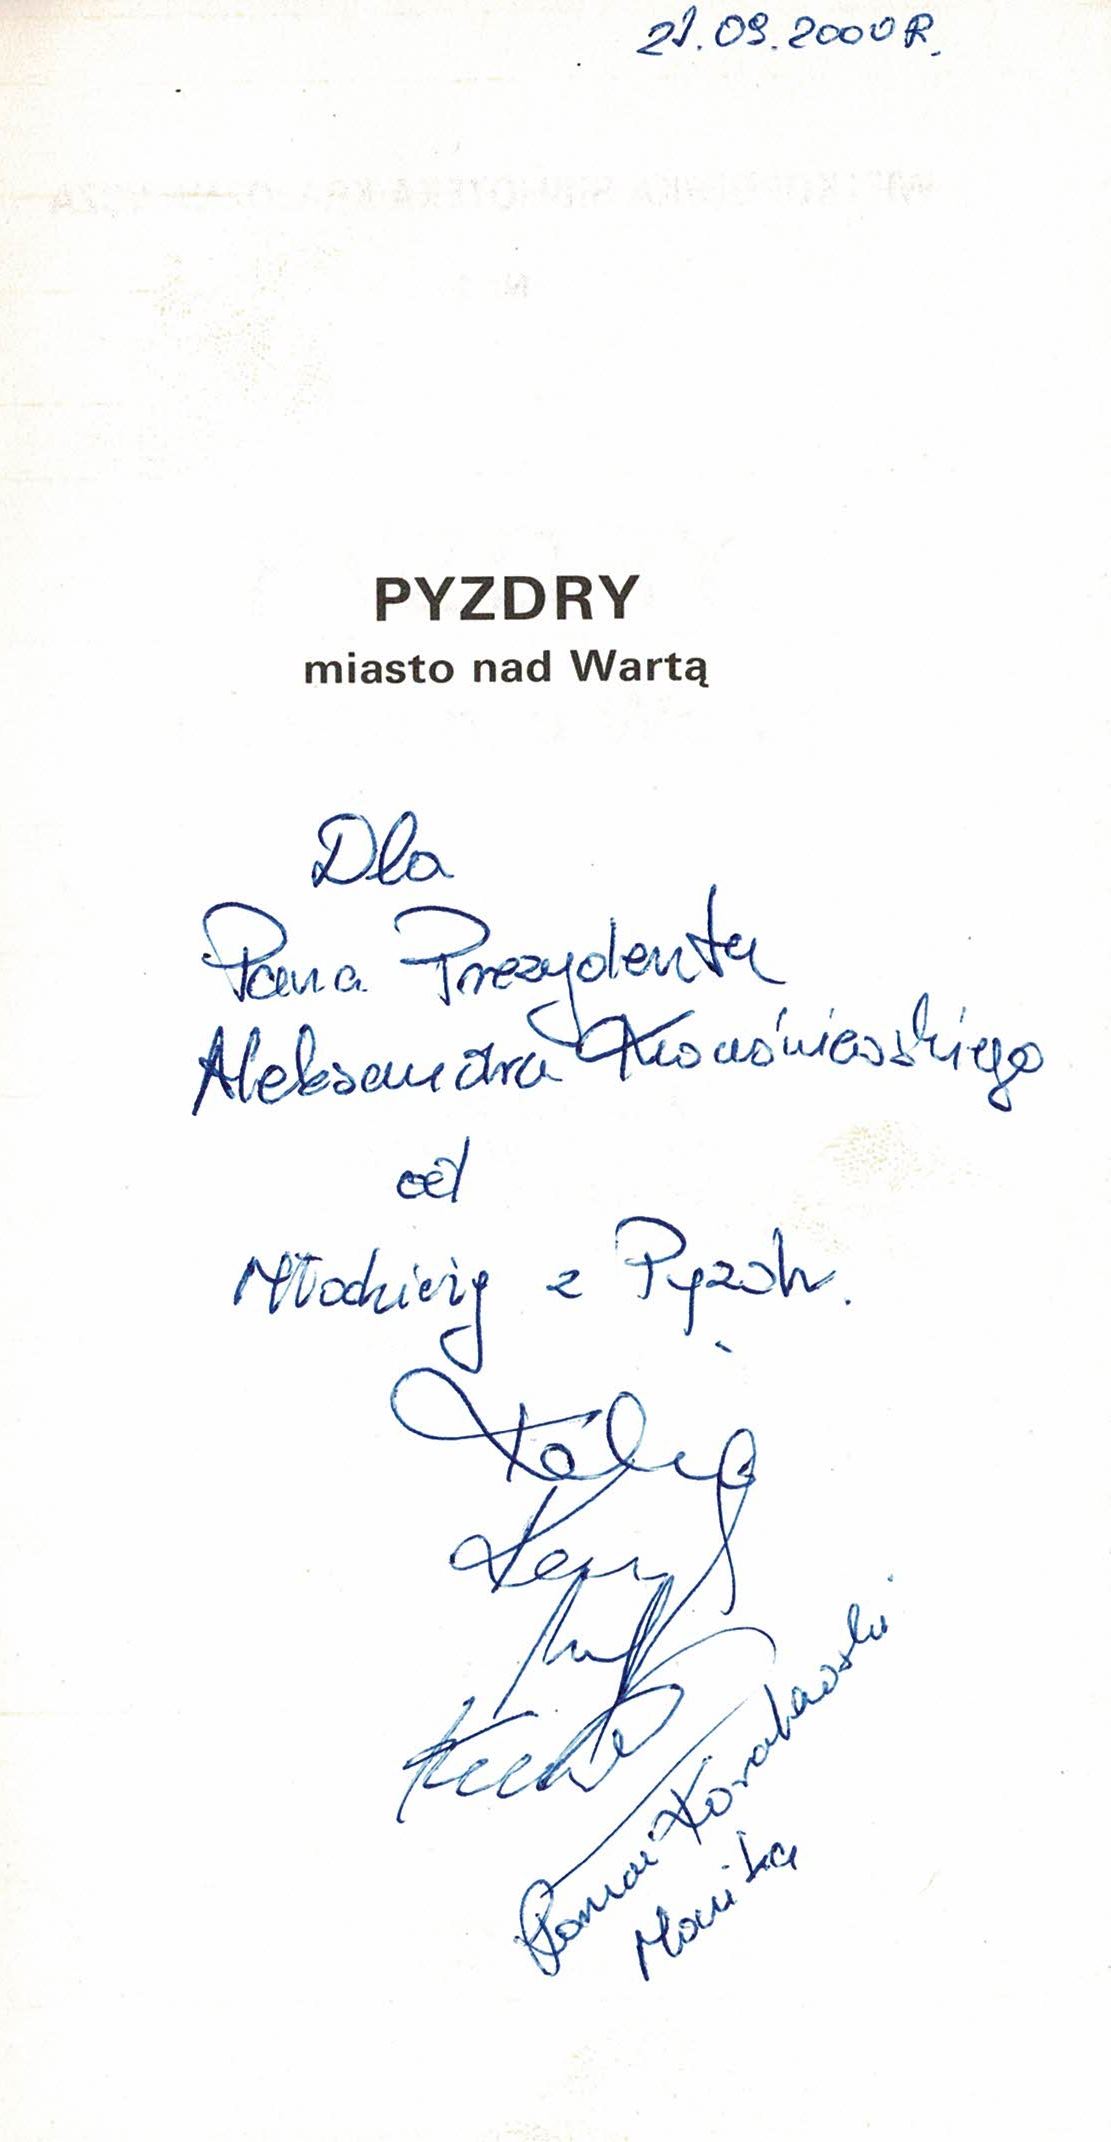 21.09.2000 R.
PYZDRY
miasto nad Wartą
Dla
Pana Prezydenta
Aleksandra Kwaśniewskiego
od
Młodzieży z Pyzdr.
Roman Korabowski
Monika